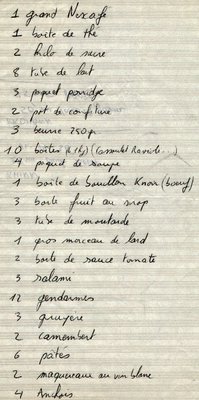 1 grand Nescafé
1 boite de thé
2 kilo de sucre
8 tube de lait
3 paquet porridge
2 pot de confiture
3 beurre 250 gr
10 boites (1 kg) (Cassoulet Ravioli...)
4 paquet de soupe
1 boite de bouillon Knorr (bœuf)
3 boite fruit au sirop
3 tube de moutarde
1 gros morceau de lard
2 boite de sauce tomate
3 salami
12 gendarmes
3 gruyère
2 camembert
6 pâtes
2 maquereaux au vin blanc
4 Anchois